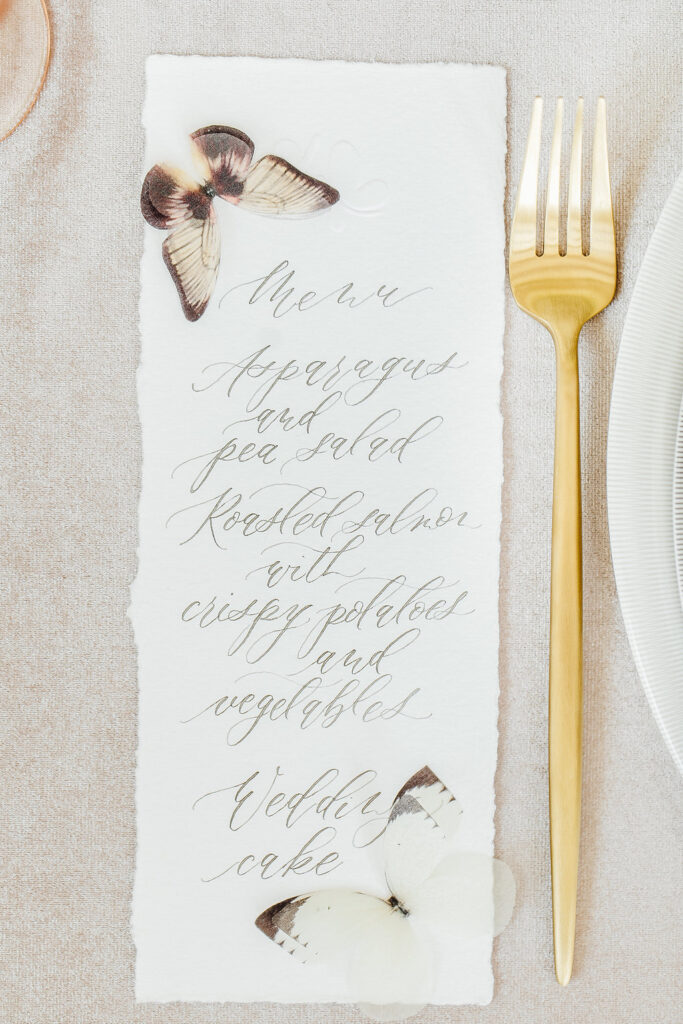 Menu
Asparagus
and
pea salad
Roasted salmon
with
crispy potatoes
and
vegetables
Wedding
cake